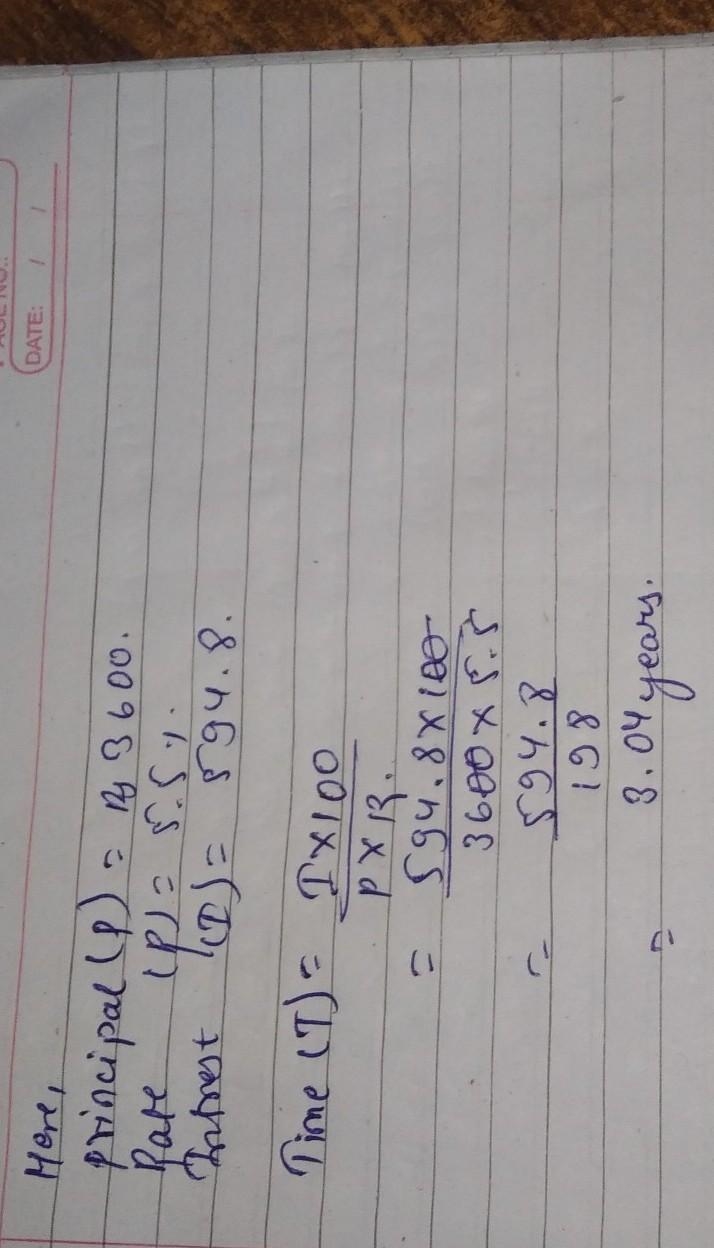 PAGE NO.:
DATE: / /
Here,
principal (P) = Rs 3600.
Rate (P) = 5.5%.
Intrest (I) = 594.8.
Time (T) = I×100
P×R.
= 594.8×100
3600×5.5
= 594.8
198
= 3.04 years.